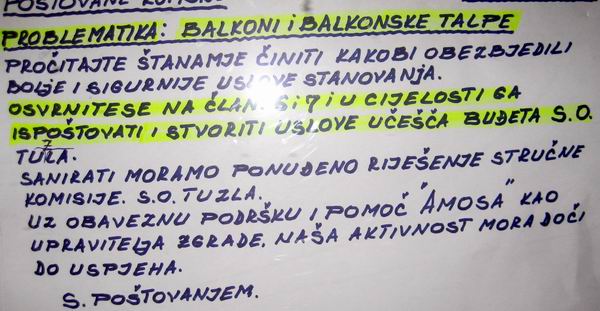 POŠTOVANE KOMŠI
PROBLEMATIKA: BALKONI i BALKONSKE TALPE
PROČITAJTE ŠTANAMJE ČINITI KAKOBI OBEZBJEDILI
BOLJE I SIGURNIJE USLOVE STANOVANJA.
OSVRNITESE NA ČLAN. 6 i 7 i U CIJELOSTI GA
ISPOŠTOVATI I STVORITI USLOVE UČEŠČA BUĐETA S.O.
TUZLA.
SANIRATI MORAMO PONUĐENO RIJEŠENJE STRUČNE
KOMISIJE. S.O. TUZLA.
UZ OBAVEZNU PODRŠKU I POMOČ "AMOSA" KAO
UPRAVITELJA ZGRADE, NAŠA AKTIVNOST MORA DOĆI
DO USPJEHA.
S. POŠTOVANJEM.